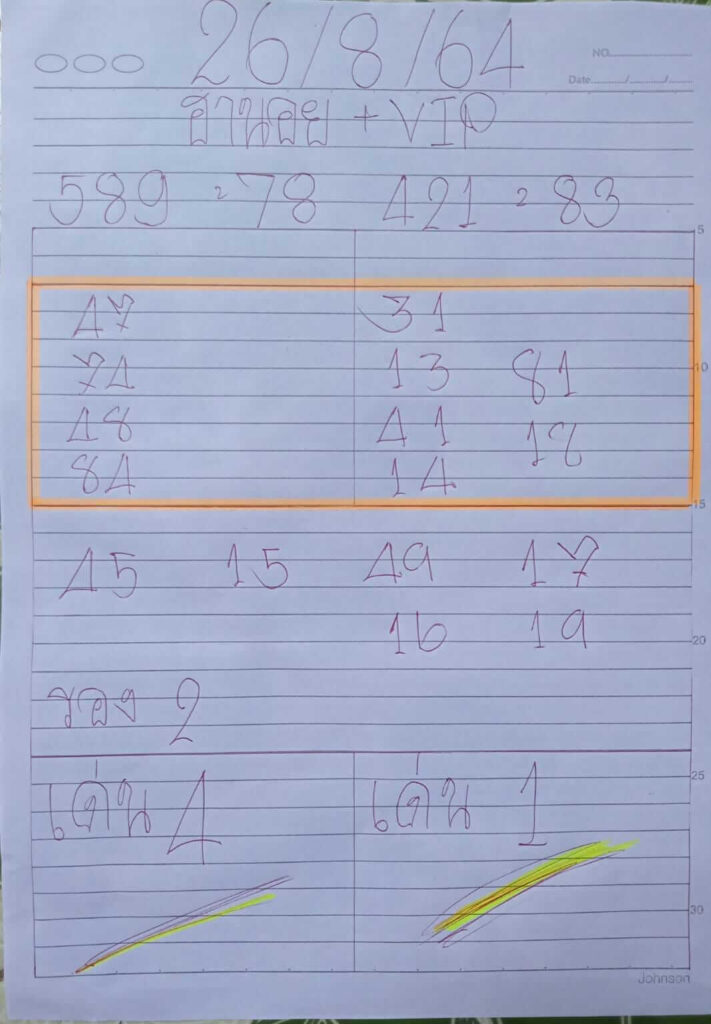 26/8/64
NO.
Date / /
ฮานอย + VIP
589 = 78 421 = 83
5
47 31
74 13 81
10
48 41 18
84 14
15
45 15 49 17
16 19
20
รอง 2
25
เด่น 4 เด่น 1
30
Johnson